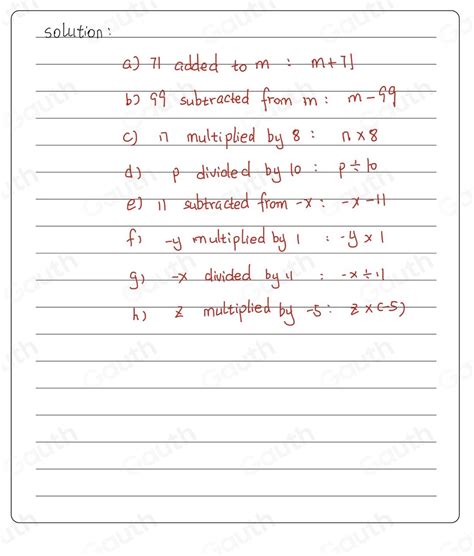 solution:
a) 71 added to m : m+71
b) 99 subtracted from m : m-99
c) n multiplied by 8 : n×8
d) p divided by 10 : p÷10
e) 11 subtracted from -x : -x-11
f) -y multiplied by 1 : -y×1
g) -x divided by 11 : -x÷11
h) z multiplied by -5 : z×(-5)
Gauth